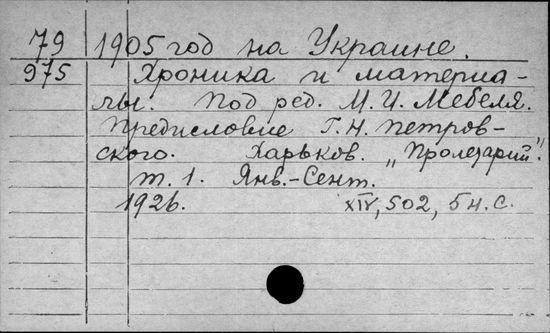 79 1905 год на Украине.
975 Хроника и материа-
лы. Под ред. М.И. Мебеля.
Предисловие Г.Н. Петров-
ского. Харьков. „Пролетарий".
т. 1. Янв.-Сент.
1926. XIV, 502, 5 н. с.